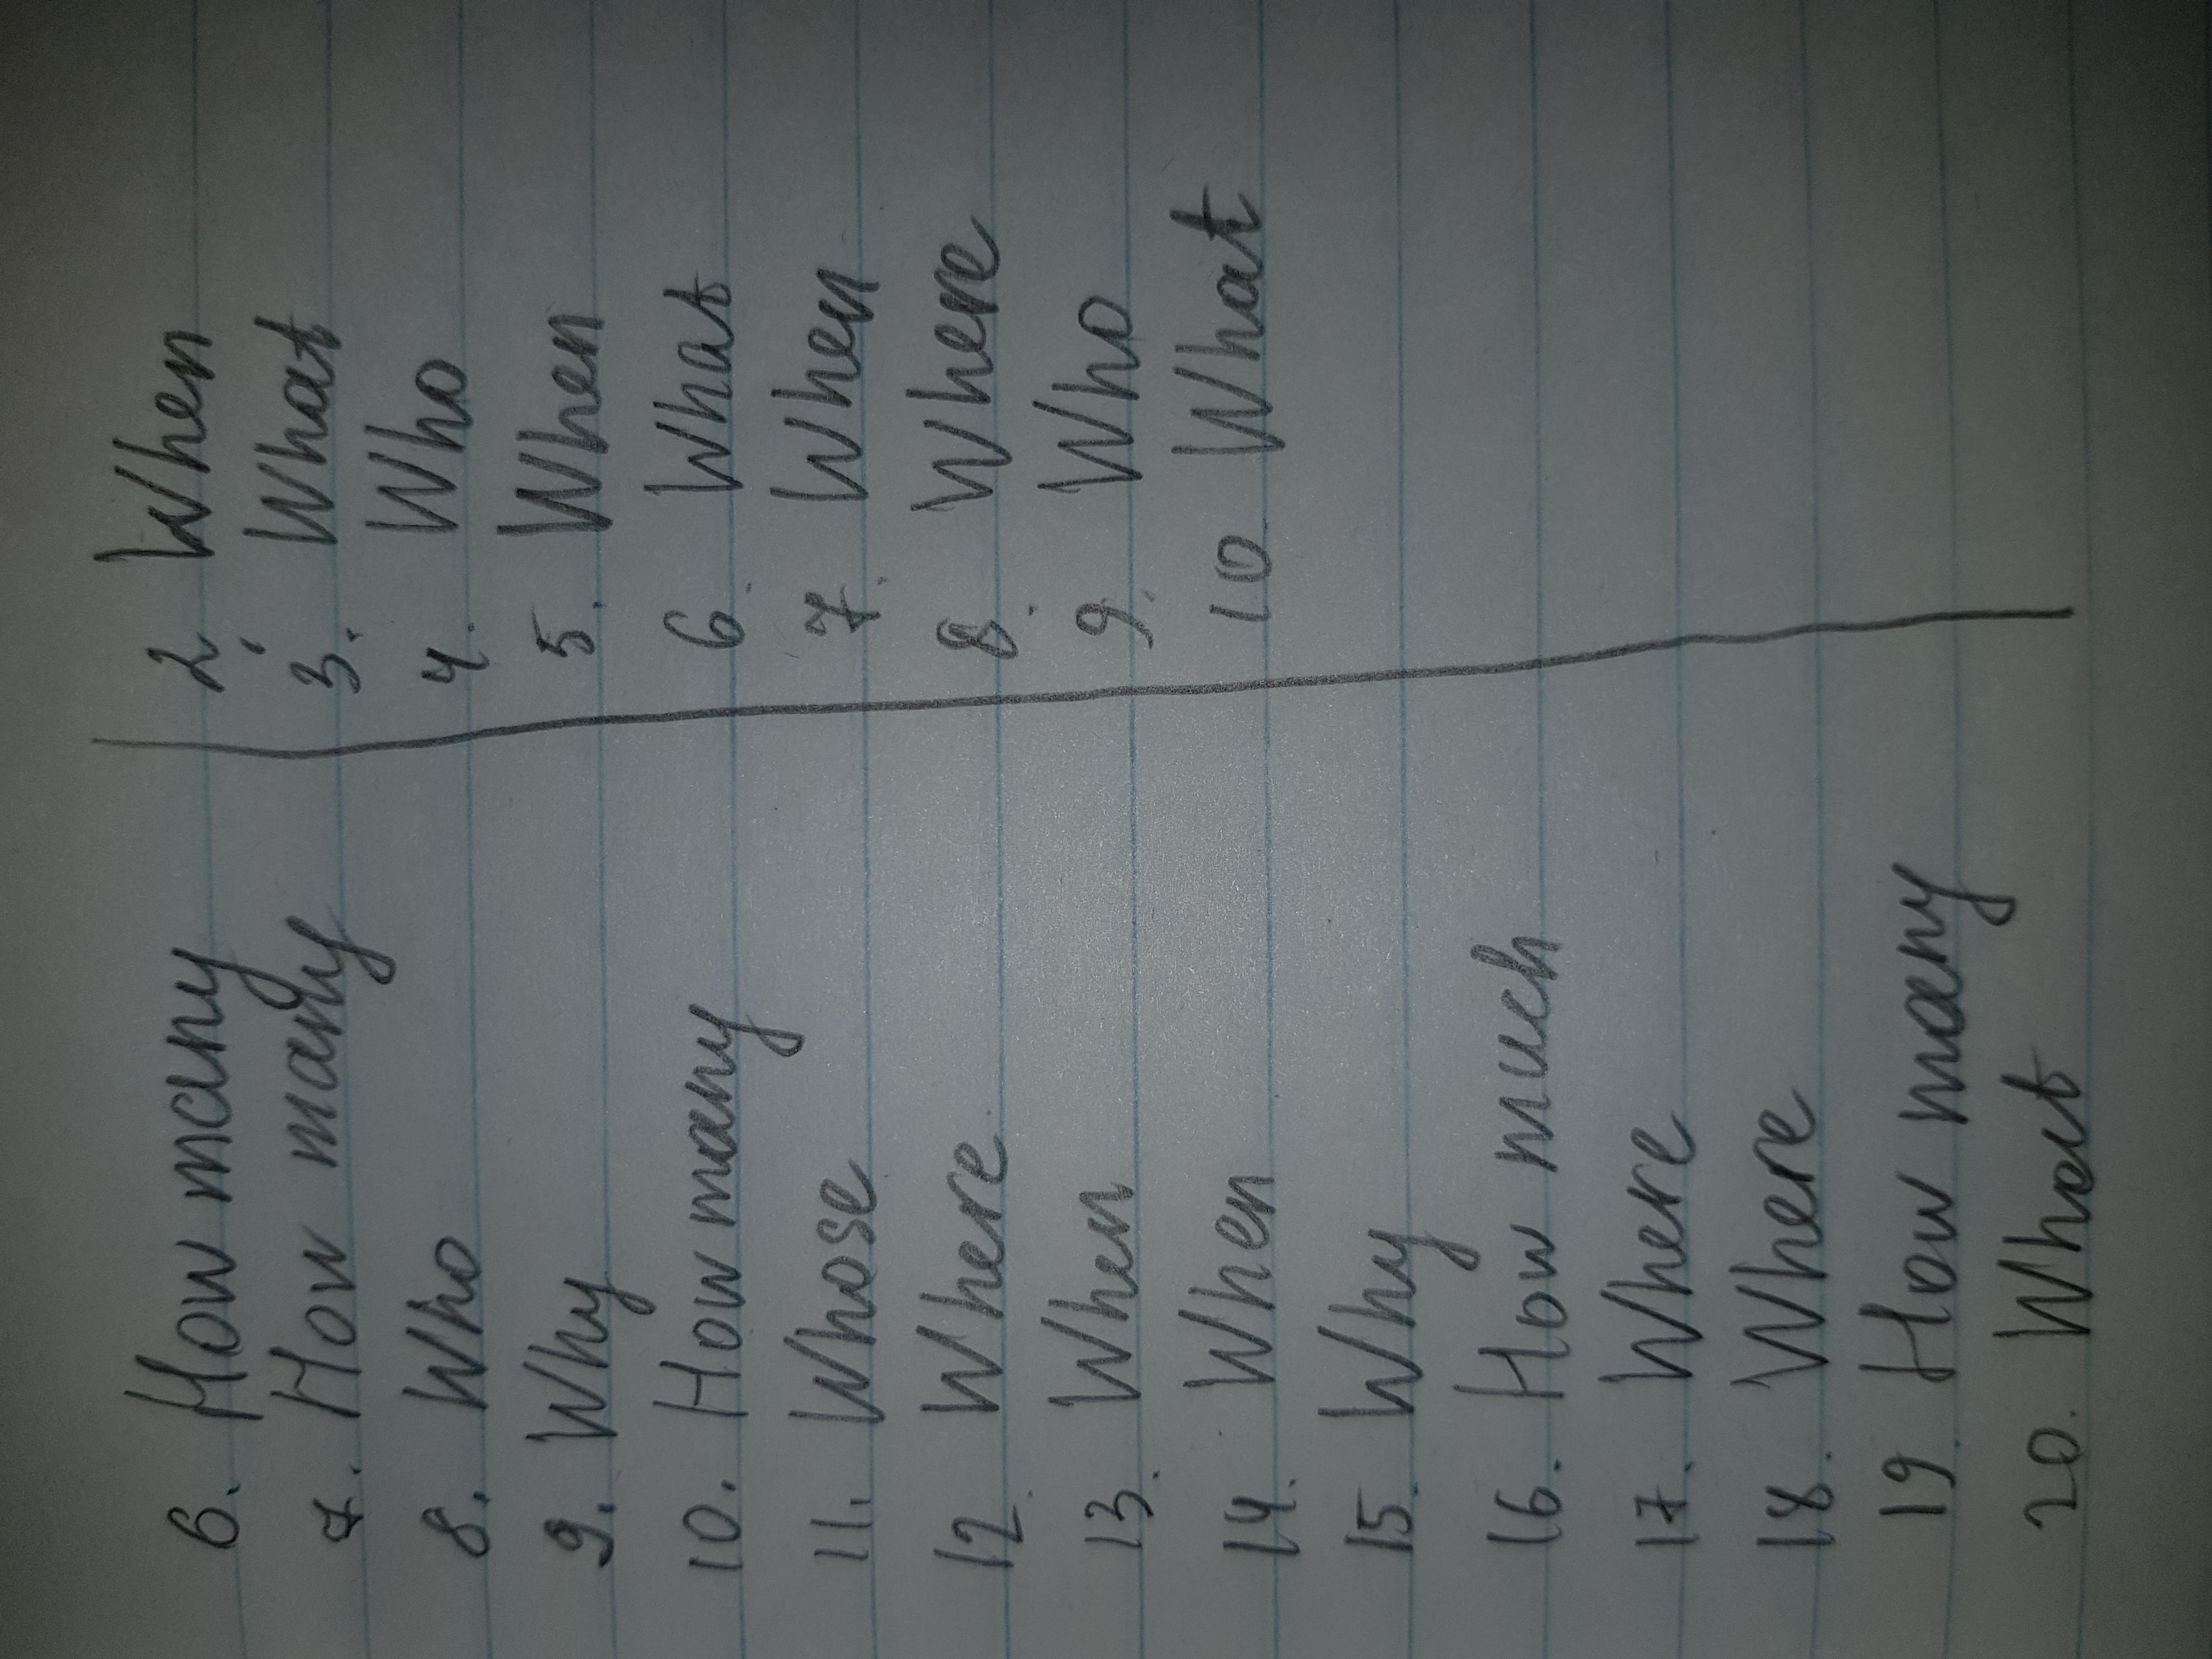 6. How many
7. How many
8. Who
9. Why
10. How many
11. Whose
12. Where
13. When
14. When
15. Why
16. How much
17. Where
18. Where
19. How many
20. What
2. When
3. What
4. Who
5. When
6. What
7. When
8. Where
9. Who
10 What